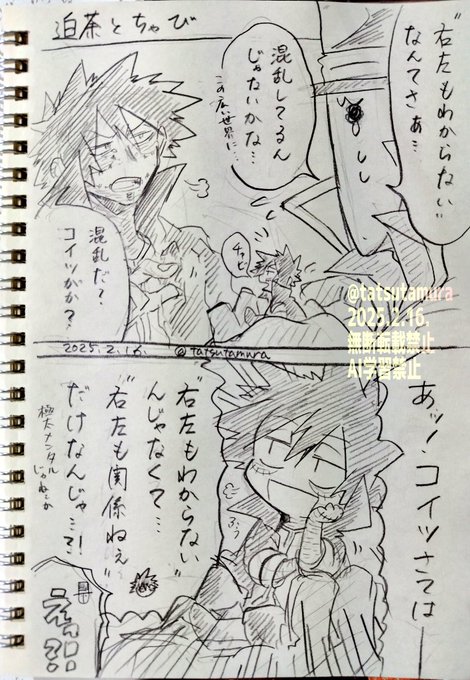 迫茶とちゃび
"右左もわからない"
なんてさぁ…
混乱してるん
じゃないかな…
この広い世界に…
チャビ
混乱だ?
コイツがか?
2025.2.16.
@tatsutamura
@tatsutamura
2025.2.16.
無断転載禁止
AI学習禁止
あッ、コイツさては
"右左もわからない"
んじゃなくて…
"右左も関係ねぇ"
だけなんじゃ…?!
極太メンタル
じゃねーか
ふぅ